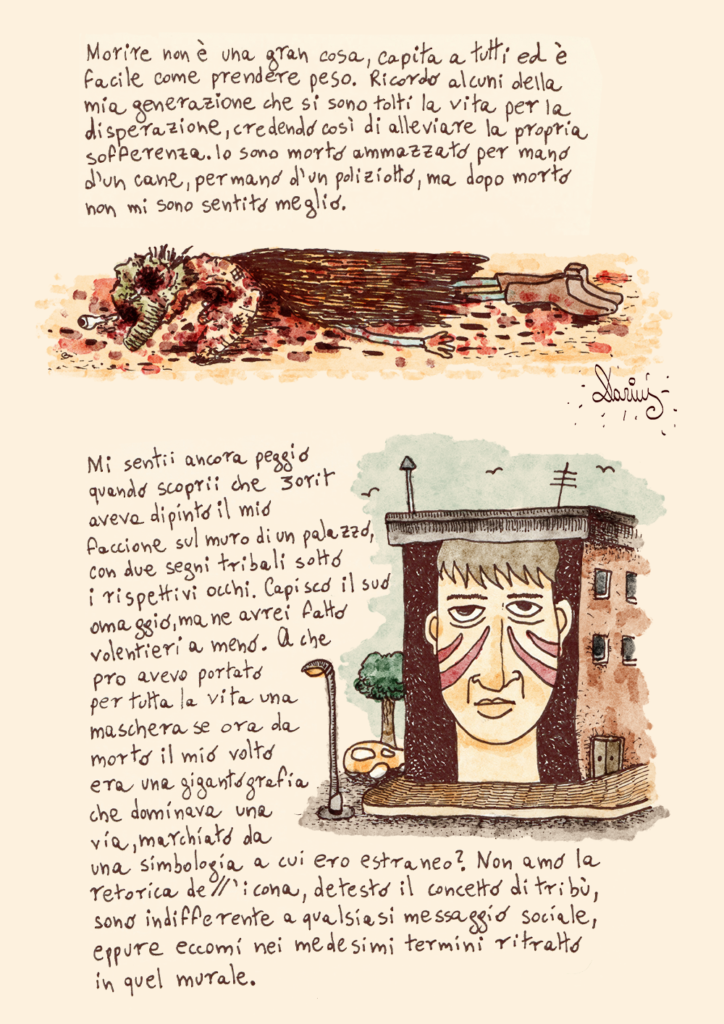 Morire non è una gran cosa, capita a tutti ed è
facile come prendere peso. Ricordo alcuni della
mia generazione che si sono tolti la vita per la
disperazione, credendo così di alleviare la propria
sofferenza. Io sono morto ammazzato per mano
d'un cane, per mano d'un poliziotto, ma dopo morto
non mi sono sentito meglio.
Darius
Mi sentii ancora peggio
quando scoprii che 3orit
aveva dipinto il mio
faccione sul muro di un palazzo,
con due segni tribali sotto
i rispettivi occhi. Capisco il suo
omaggio, ma ne avrei fatto
volentieri a meno. A che
pro avevo portato
per tutta la vita una
maschera se ora da
morto il mio volto
era una gigantografia
che dominava una
via, marchiato da
una simbologia a cui ero estraneo? Non amo la
retorica dell'icona, detesto il concetto di tribù,
sono indifferente a qualsiasi messaggio sociale,
eppure eccomi nei medesimi termini ritratto
in quel murale.